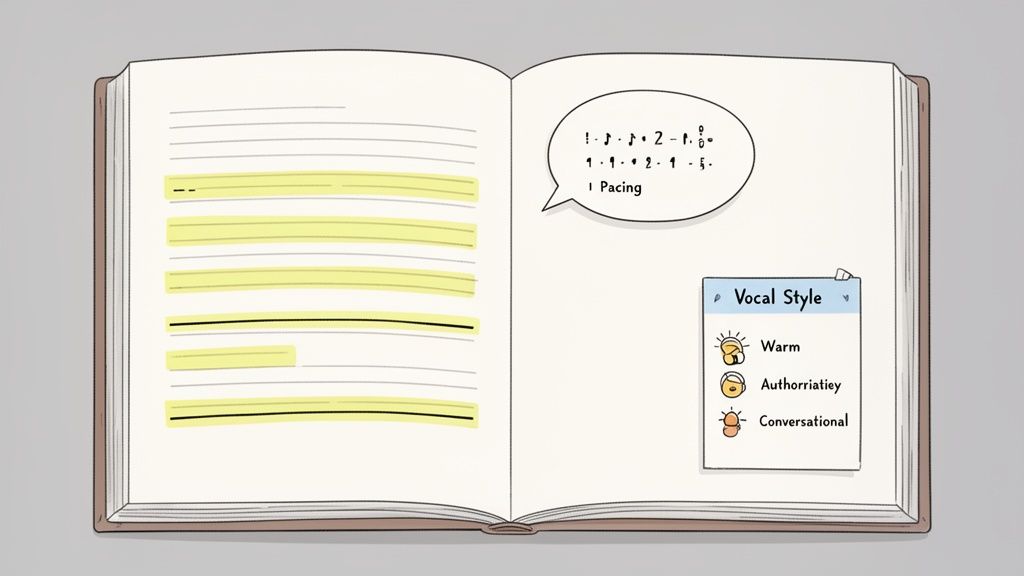 Pacing
Vocal Style
Warm
Authorriatiey
Conversational